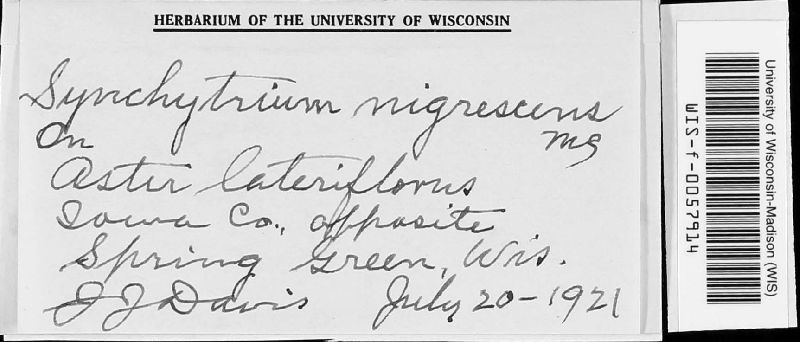 HERBARIUM OF THE UNIVERSITY OF WISCONSIN
Synchytrium nigrescens
On ms
Aster lateriflorus
Iowa Co., opposite
Spring Green, Wis.
J J Davis July 20-1921
University of Wisconsin-Madison (WIS)
WIS-f-0057914